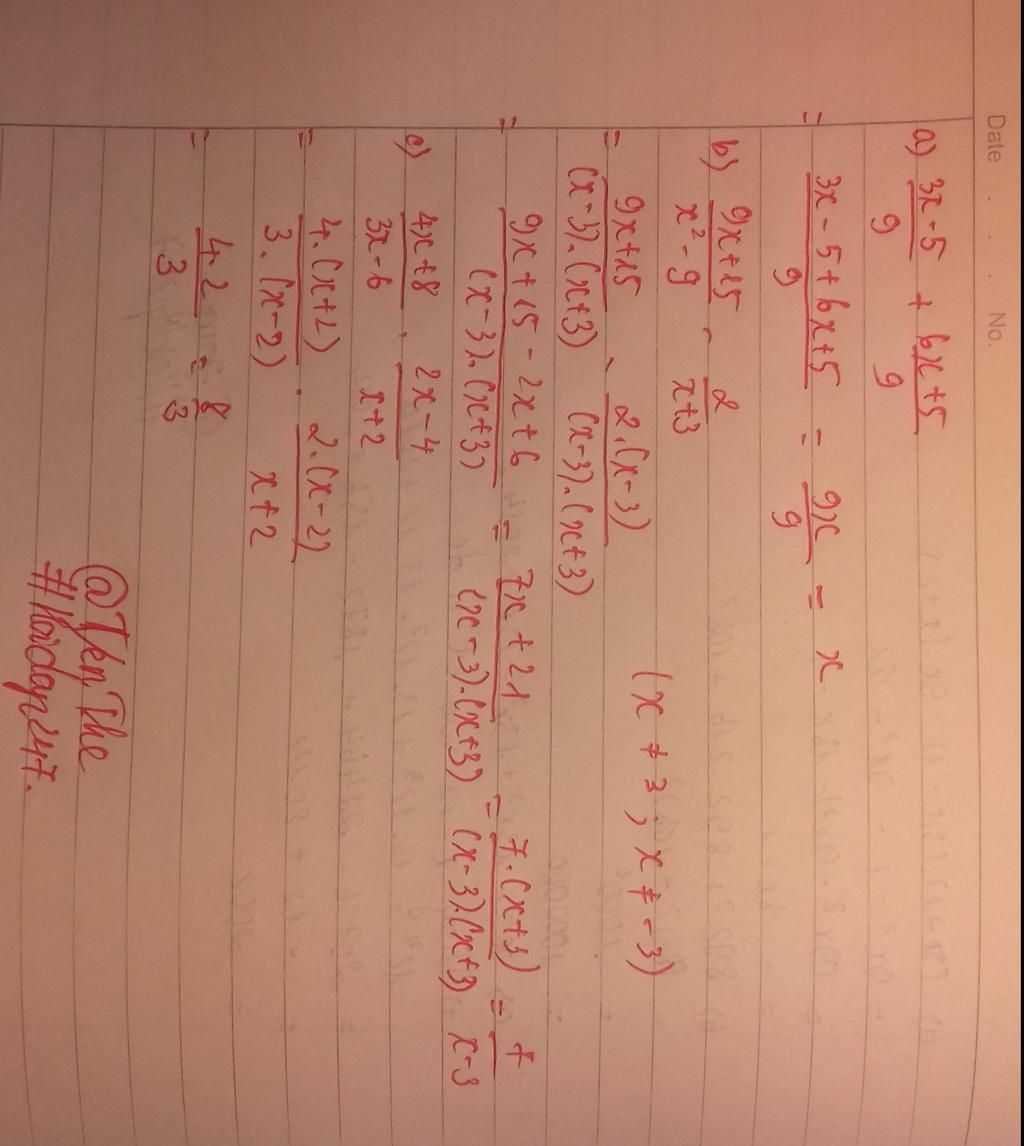 Date . . . No.
a) \frac{3x-5}{9} + \frac{6x+5}{9}
= \frac{3x-5+6x+5}{9} = \frac{9x}{9} = x
b) \frac{9x+15}{x^2-9} - \frac{2}{x+3} (x ≠ 3, x ≠ -3)
= \frac{9x+15}{(x-3).(x+3)} - \frac{2.(x-3)}{(x-3).(x+3)}
= \frac{9x+15-2x+6}{(x-3).(x+3)} = \frac{7x+21}{(x-3).(x+3)} = \frac{7.(x+3)}{(x-3).(x+3)} = \frac{7}{x-3}
c) \frac{4x+8}{3x-6} . \frac{2x-4}{x+2}
= \frac{4.(x+2)}{3.(x-2)} . \frac{2.(x-2)}{x+2}
= \frac{4.2}{3} = \frac{8}{3}
#hoidap247.